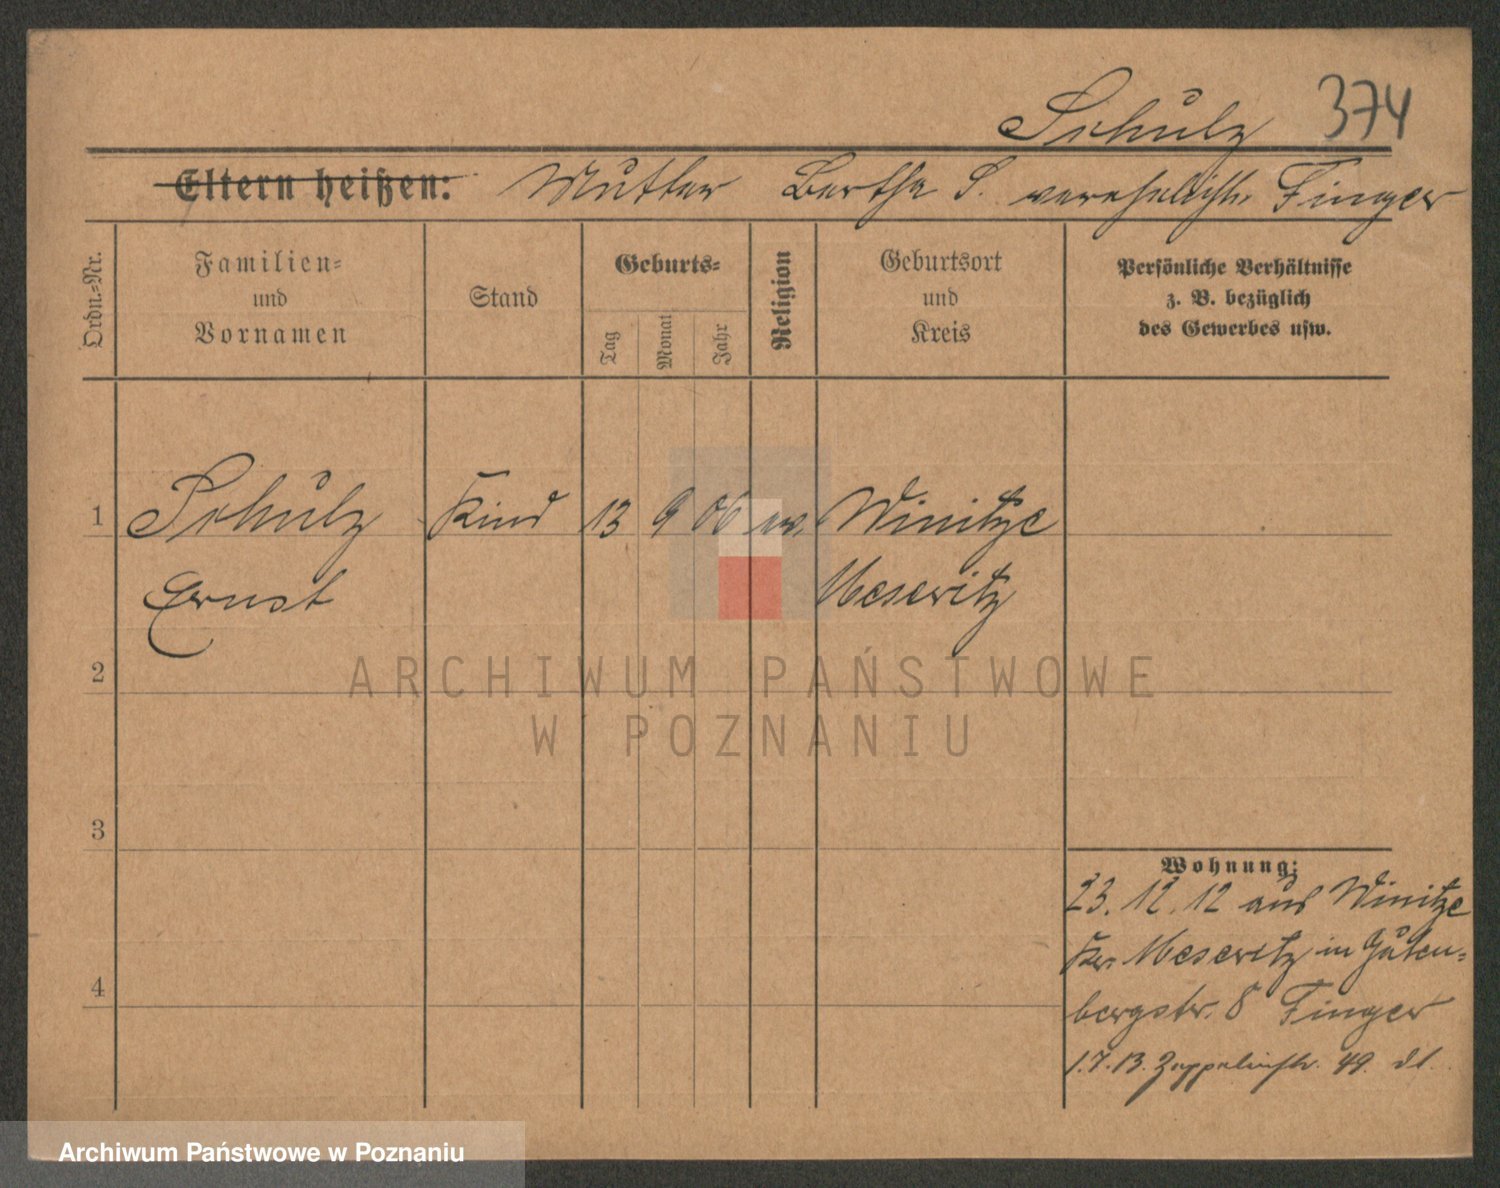 Schulz 374
Eltern heißen: Mutter Bertha S. verehelicht. Finger
Ordn.-Nr.
Familien-
und
Vornamen
Stand
Geburts-
Tag
Monat
Jahr
Religion
Geburtsort
und
Kreis
Persönliche Verhältnisse
z. B. bezüglich
des Gewerbes usw.
1 Schulz Kind 13 9 06 ev. Winitze
Ernst Meseritz
2
3
4
Wohnung:
23. 12. 12 aus Winitze
Kr. Meseritz in Guten-
bergstr. 8 Finger
1.7.13. Zeppelinstr. 49.
ARCHIWUM PAŃSTWOWE
W POZNANIU
Archiwum Państwowe w Poznaniu